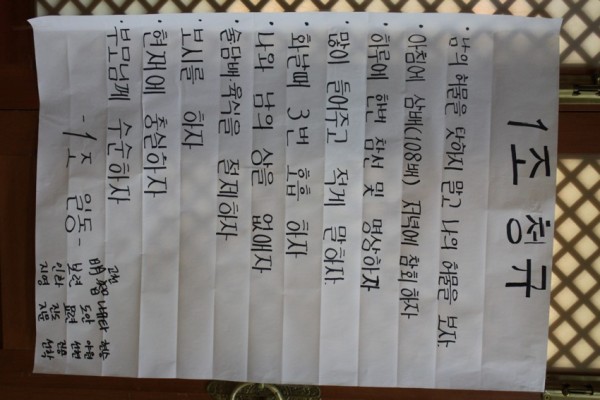 1조 청규
· 남의 허물을 탓하지 말고 나의 허물을 보자
· 아침에 삼배(108배) 저녁에 참회하자
· 하루에 한번 참선 및 명상하자
· 많이 들어주고 적게 말하자
· 화날때 3번 호흡 하자
· 나와 남의 상을 없애자
· 술담배 육식을 절제하자
· 보시를 하자
· 현재에 충실하자
· 부모님께 수순하자
- 1조 일동 -